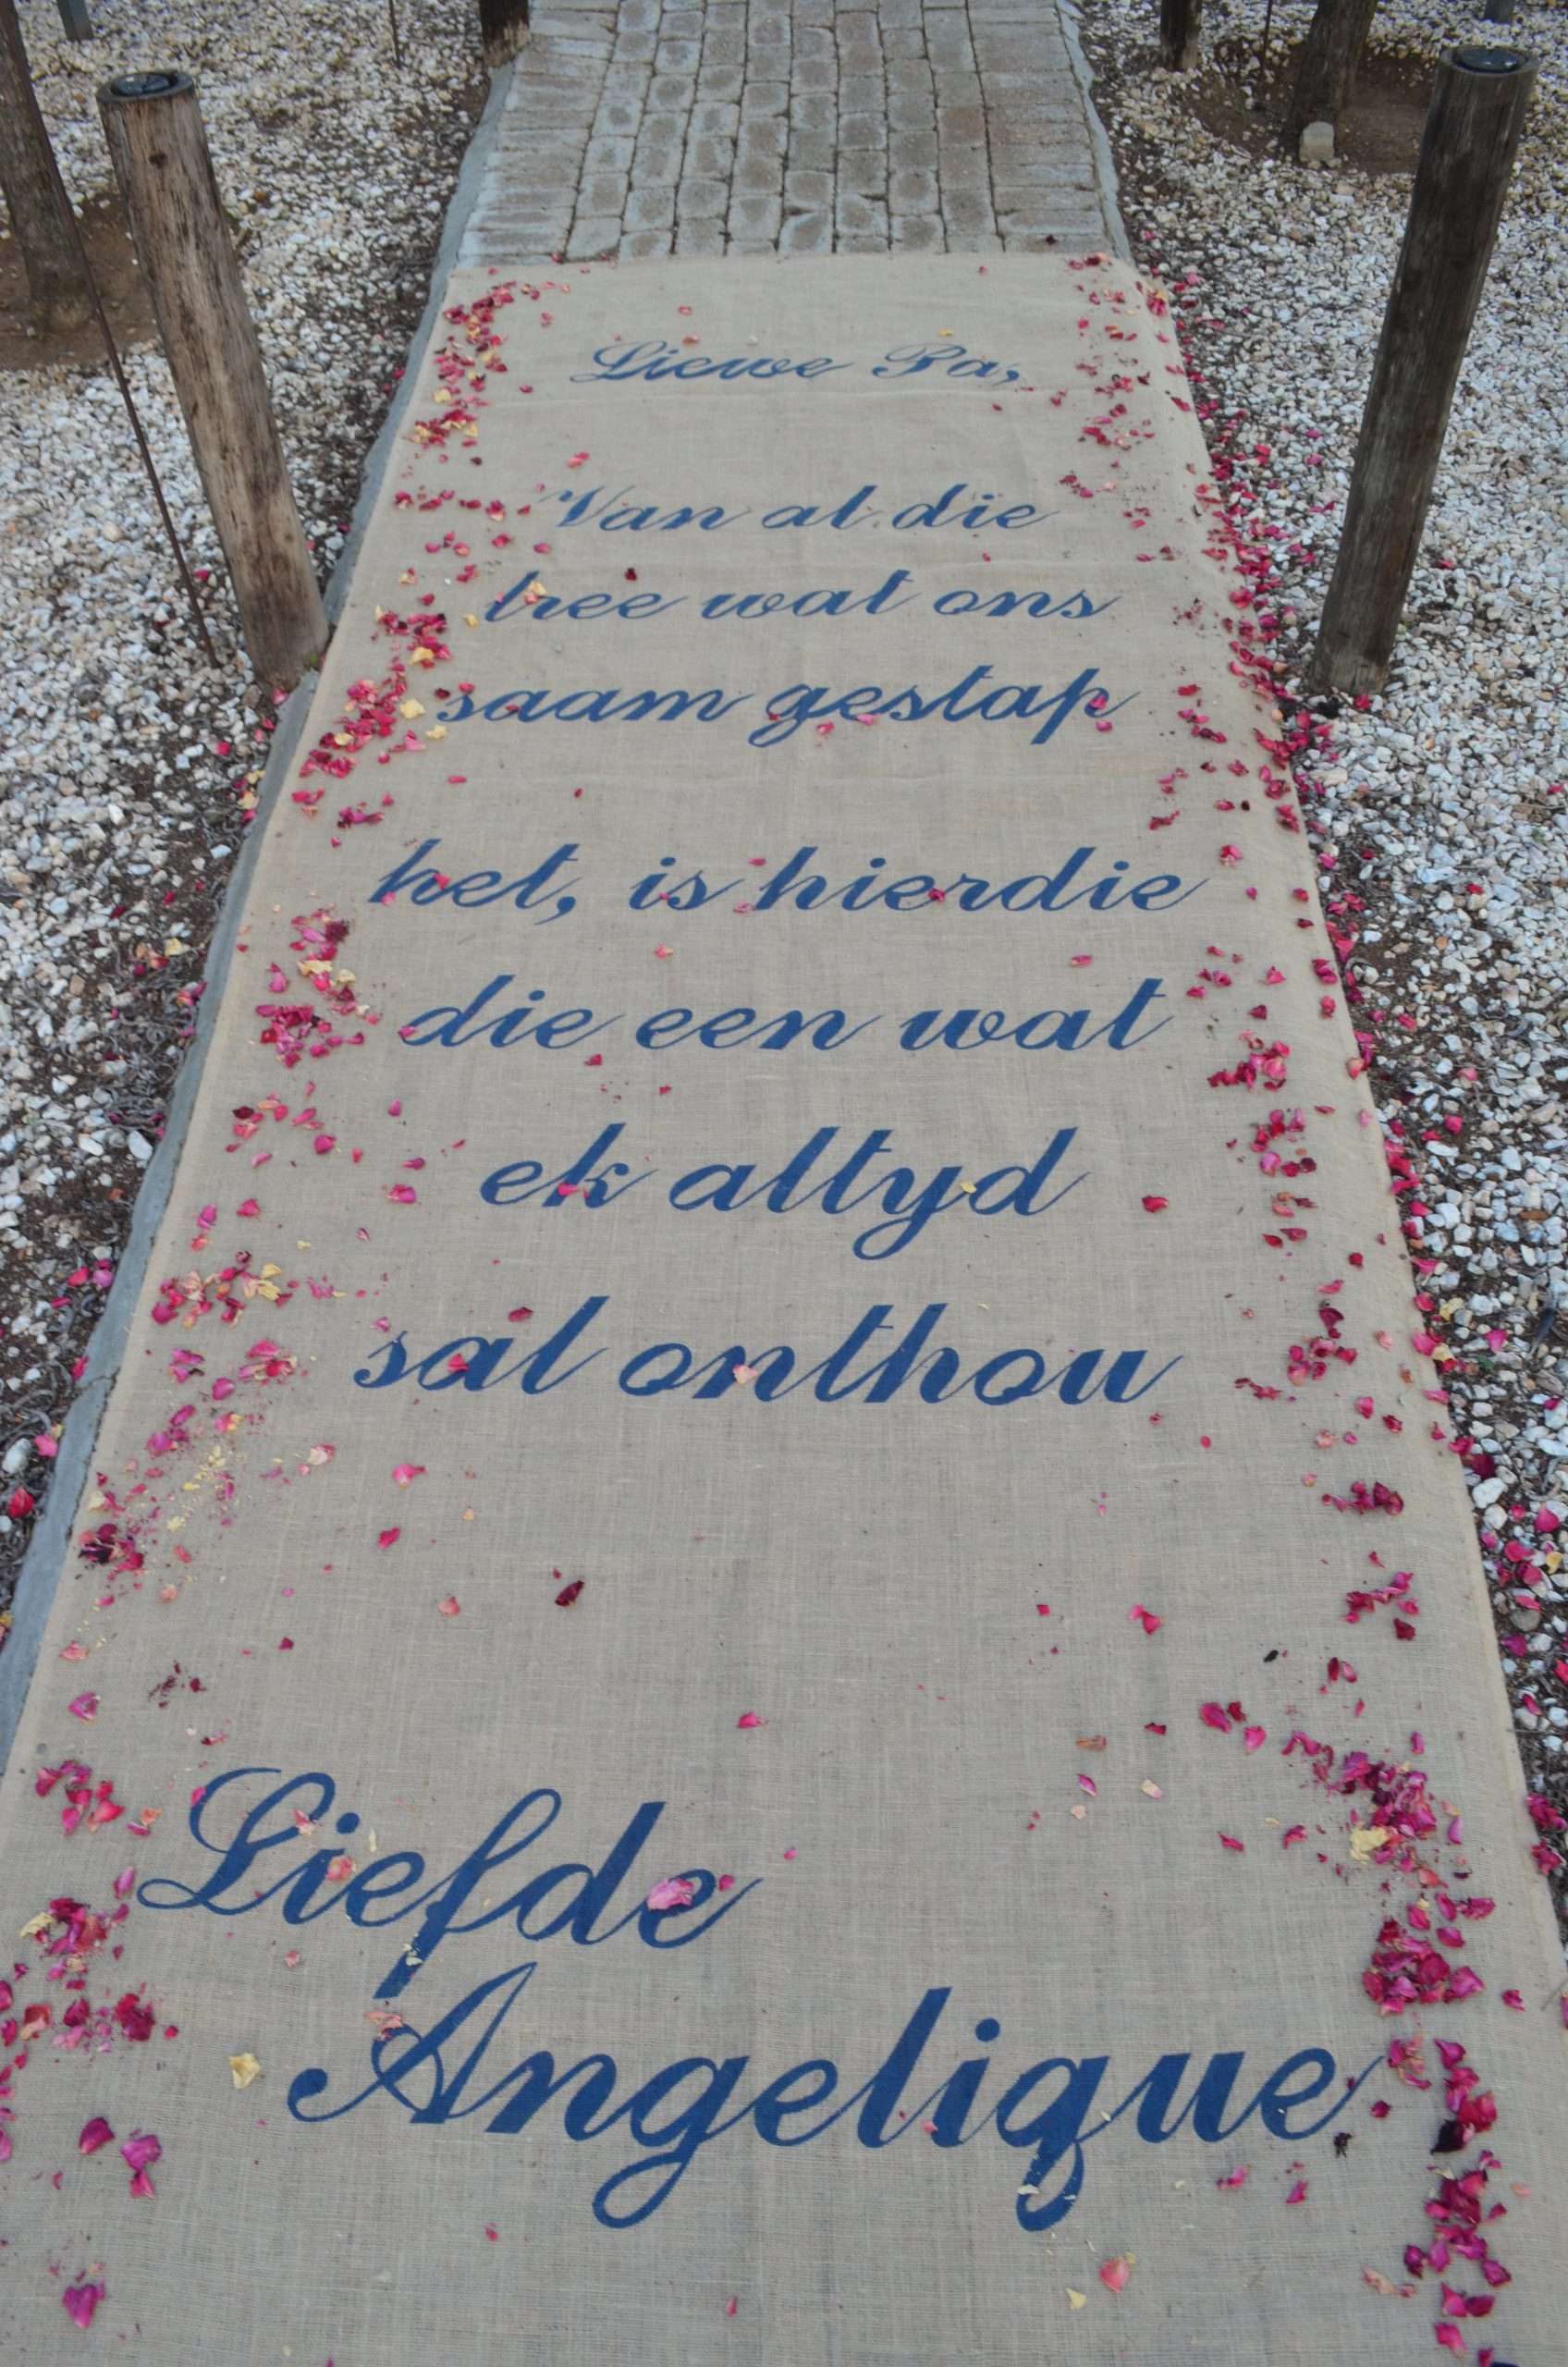 Liewe Pa,
Van al die
tree wat ons
saam gestap
het, is hierdie
die een wat
ek altyd
sal onthou
Liefde
Angelique